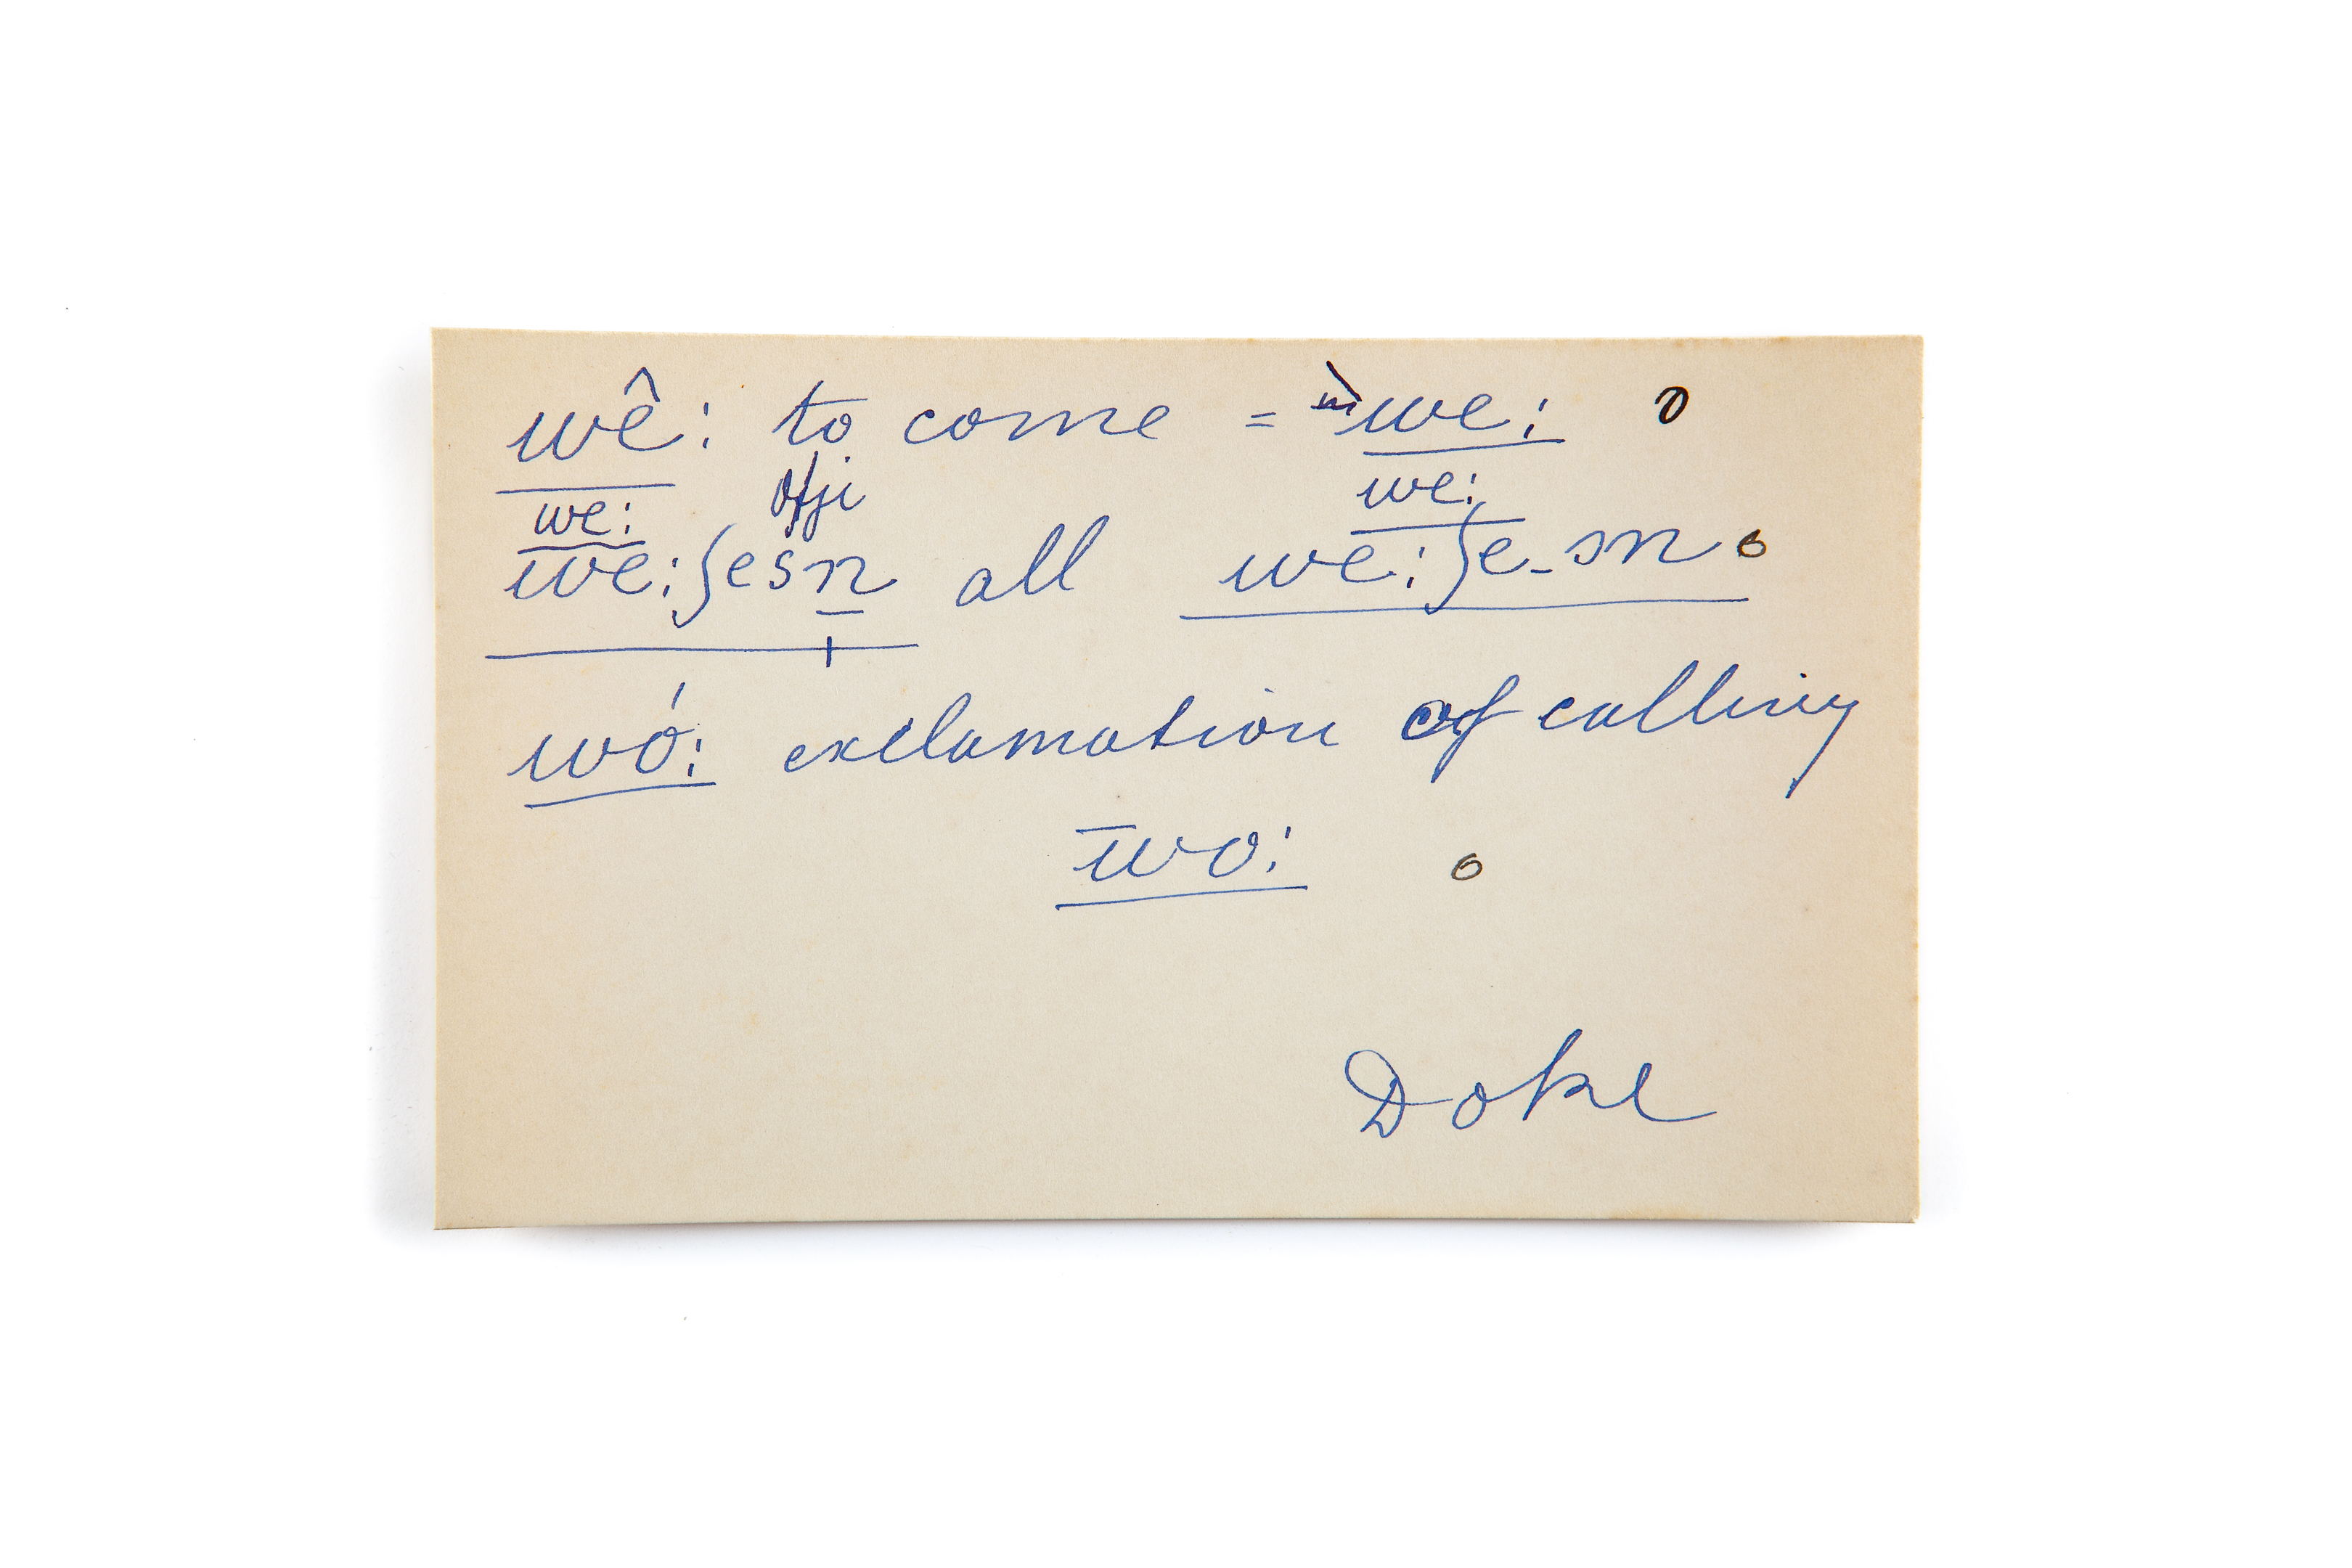 wê: to come = we: o
we: we:
we:ʃesn all we:ʃe-sn o
wó: exclamation of calling
‾wo: o
Doke